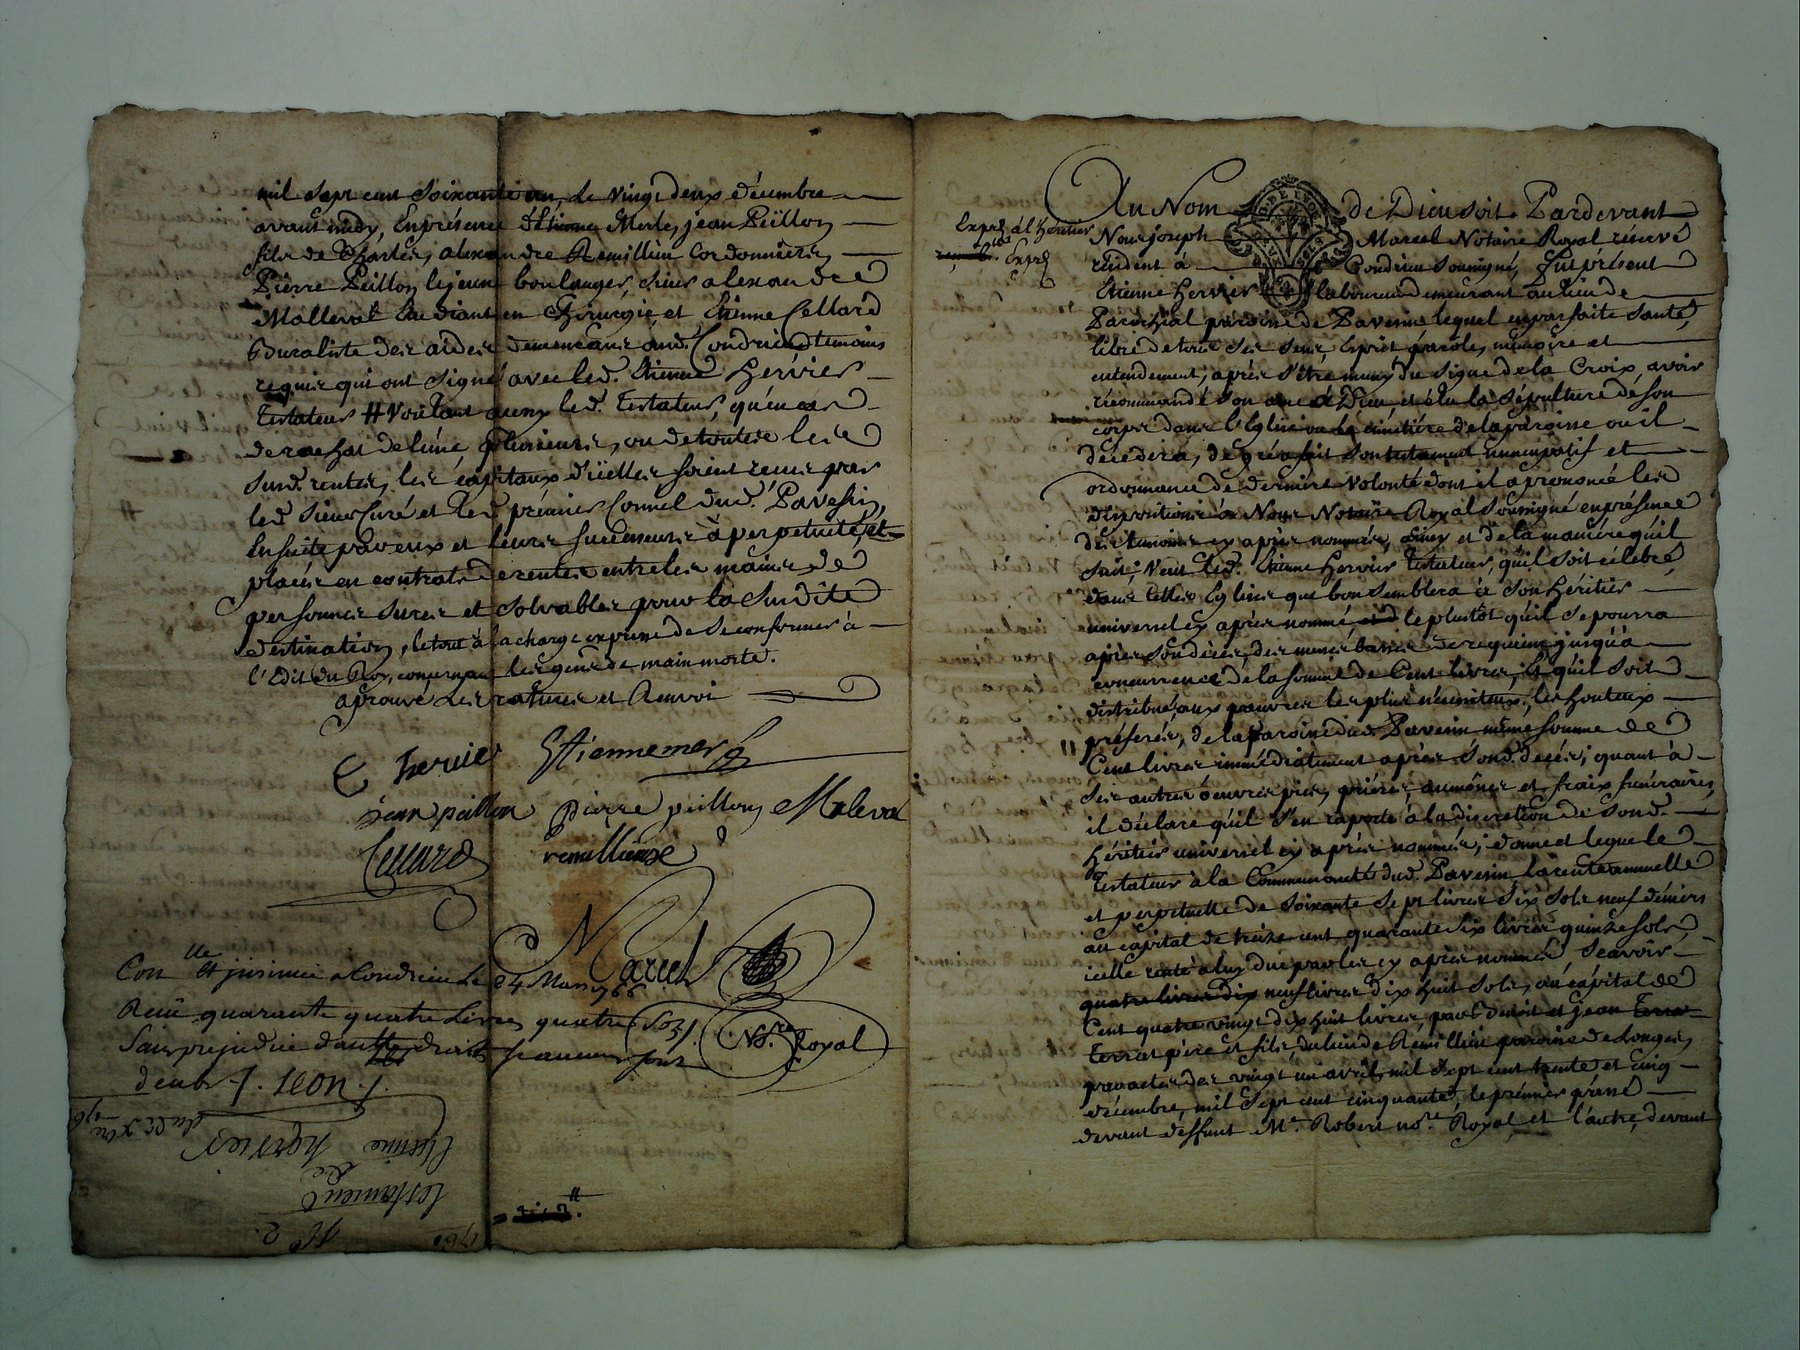 mil sept cent soixante un, le vingt deux décembre
avant midy, En présence d'Etienne Merle, jean Peillon
fils de Charles, alexandre Remillieu Cordonniers,
Pierre Peillon le jeune boulanger, sieur alexandre
Malleval Etudiant en Chirurgie, et Etienne Cellard
Buraliste des aides demeurans aud. Condrieu temoins
requis qui ont signé avec led. Etienne Hervier
Testateur # Voulant aussy led. Testateur, qu'en cas
de rachat de l'une, plusieurs, ou de toutes les
susd. rentes, les capitaux d'icelles soient remis par
led. sieur Curé et led. prémier Consul dud. Pavesin,
Ensuite par eux et leurs successeurs à perpetuité, et
placés en contrats de rentes entre les mains de
personnes sures et solvables pour la susdite
destination, le tout à la charge expresse de se conformer à
l'Edit du Roy, concernant les gens de main morte.
aprouvé les ratures et Renvoi
E hervier Etienne merle
jean peillon pierre peillon Maleval
Cellard remillieux
Marcel
Nore. Royal
Conlle et jnsinué a Condrieu Le 24 Mars 1766
Reçu quarante quatre Livres quatre sols
Sans prejudice d'autres droits
deub. J. Leon
1761
N° 2.
testament
de
Etienne hervier
du 22 Xbre 1761
Expéd. à l'héritier
Expéd.
Au Nom de Dieu soit. Pardevant
Nous joseph Marcel Notaire Royal réservé
résident à Condrieu soussigné, fut présent
Etienne Hervier laboureur demeurant au lieu de
paroisse de Pavesin lequel en parfaite santé,
libre de tous ses sens, Esprit, parole, mémoire et
entendement, après s'être muny du signe de la Croix, avoir
récommandé son ame à Dieu, et élu la sépulture de son
corps dans l'Eglise ou le cimetière de la paroisse ou il
décédera, de gré a fait son testament nuncupatif et
ordonnance de dernière volonté dont il a prononcé les
dispositions à Nous Notaire Royal soussigné en présence
des témoins cy après nommés, ainsy et de la manière qu'il
suit; Veut led. Etienne Hervier Testateur, qu'il soit célébré
dans telles Eglises que bon semblera à son Héritier
universel cy après nommé le plustôt qu'il se pourra
après son décès, des messes basses de requiem jusqu'à
concurrence de la somme de Cent livres, et qu'il soit
distribué aux pauvres les plus nécessiteux, les honteux
préférés, de la paroisse dud. Pavesin même somme de
Cent livres immédiatement après sond. décès; quant à
ses autres oeuvres pies, prières, aumônes et fraix funéraires,
il déclare qu'il s'en raporte à la discretion de sond.
héritier universel cy après nommé; donne et legue le
Testateur à la Communauté dud. Pavesin la rente annuelle
et perpetuelle de soixante sept livres six sols neuf déniers
au capital de treize cent quarante six livres quinze sols,
icelle rente a luy due par les cy après nommés Scavoir
quatre livres dix neuf livres dix huit sols, au capital de
Cent quatre vingt dix huit livres, par Benoit et jean Terra
Terrat père et fils, du lieu de Remillieu paroisse de Longes,
par actes des vingt un avril mil sept cent trente et cinq
décembre, mil sept cent cinquante, le prémier passé
devant deffunt Me. Robert nore. Royal et l'autre, devant